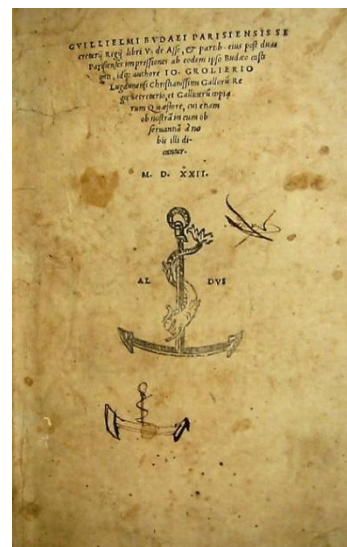 GVILLIELMI BVDAEI PARISIENSIS SE
cretarij Regij libri V. de Asse, & partib. eius post duas
Parisienses impressiones ab eodem ipso Budæo casti
gati, idq; authore IO. GROLIERIO
Lugdunensi Christianissimi Gallorũ Re
gis secretario, et Gallicarũ copia
rum Quæstore, cui etiam
ob nostrã in eum ob
seruantiã à no
bis illi di-
cantur.
M. D. XXII.
AL DVS